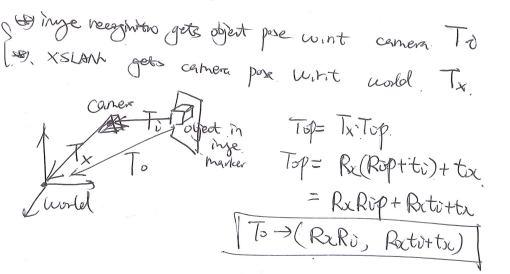 image recognition gets object pose w.r.t camera Ti
XSLAM gets camera pose w.r.t world. Tx.
camera
Ti
object in
image
marker
Tx
To
world
Top = Tx·Tip.
Top = Rx(Rip+ti)+tx.
= RxRip+Rxti+tx
To → (RxRi, Rxti+tx)